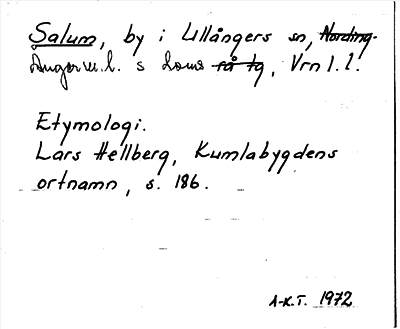 Salum, by i Ullångers sn, Nording-
Ångerm.l. s Doms så tg, Vrn l. l.
Etymologi.
Lars Hellberg, Kumlabygdens
ortnamn, s. 186.
A-K.T. 1972